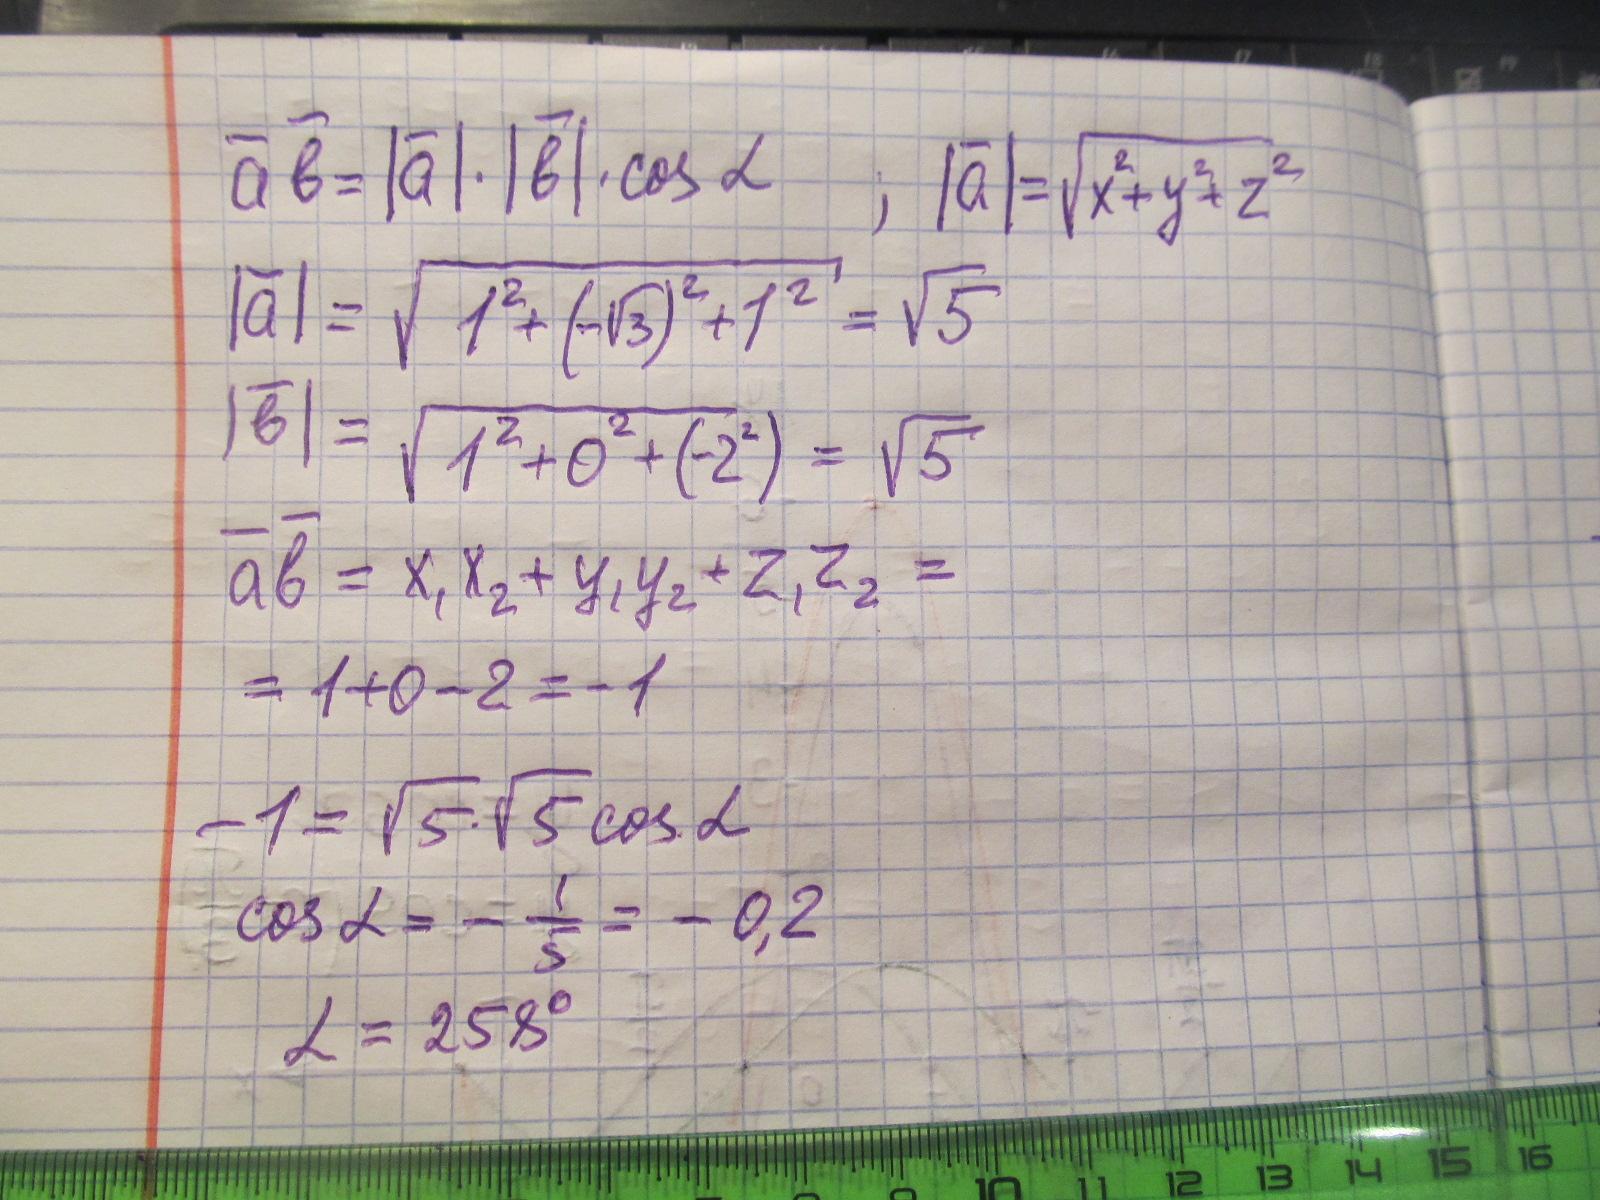 a̅ b̅ = |a̅| · |b̅| · cos α ; |a̅| = √(x² + y² + z²)
|a̅| = √(1² + (-√3)² + 1²) = √5
|b̅| = √(1² + 0² + (-2²)) = √5
a̅ b̅ = x₁x₂ + y₁y₂ + z₁z₂ =
= 1 + 0 - 2 = -1
-1 = √5 · √5 cos α
cos α = - 1/5 = - 0,2
α = 258°
10 11 12 13 14 15 16